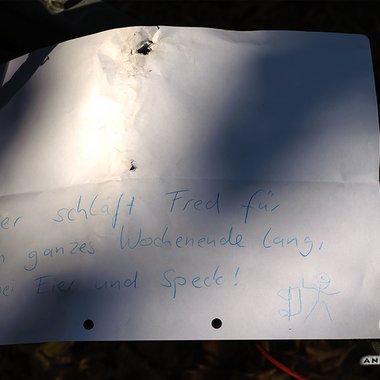 er schläft Fred für
n ganzes Wochenende lang,
ei Eier und Speck!
AN